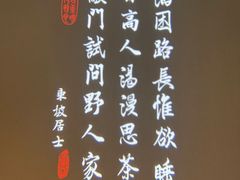 酒困路長惟欲睡
日高人渴漫思茶
敲門試問野人家
東坡居士